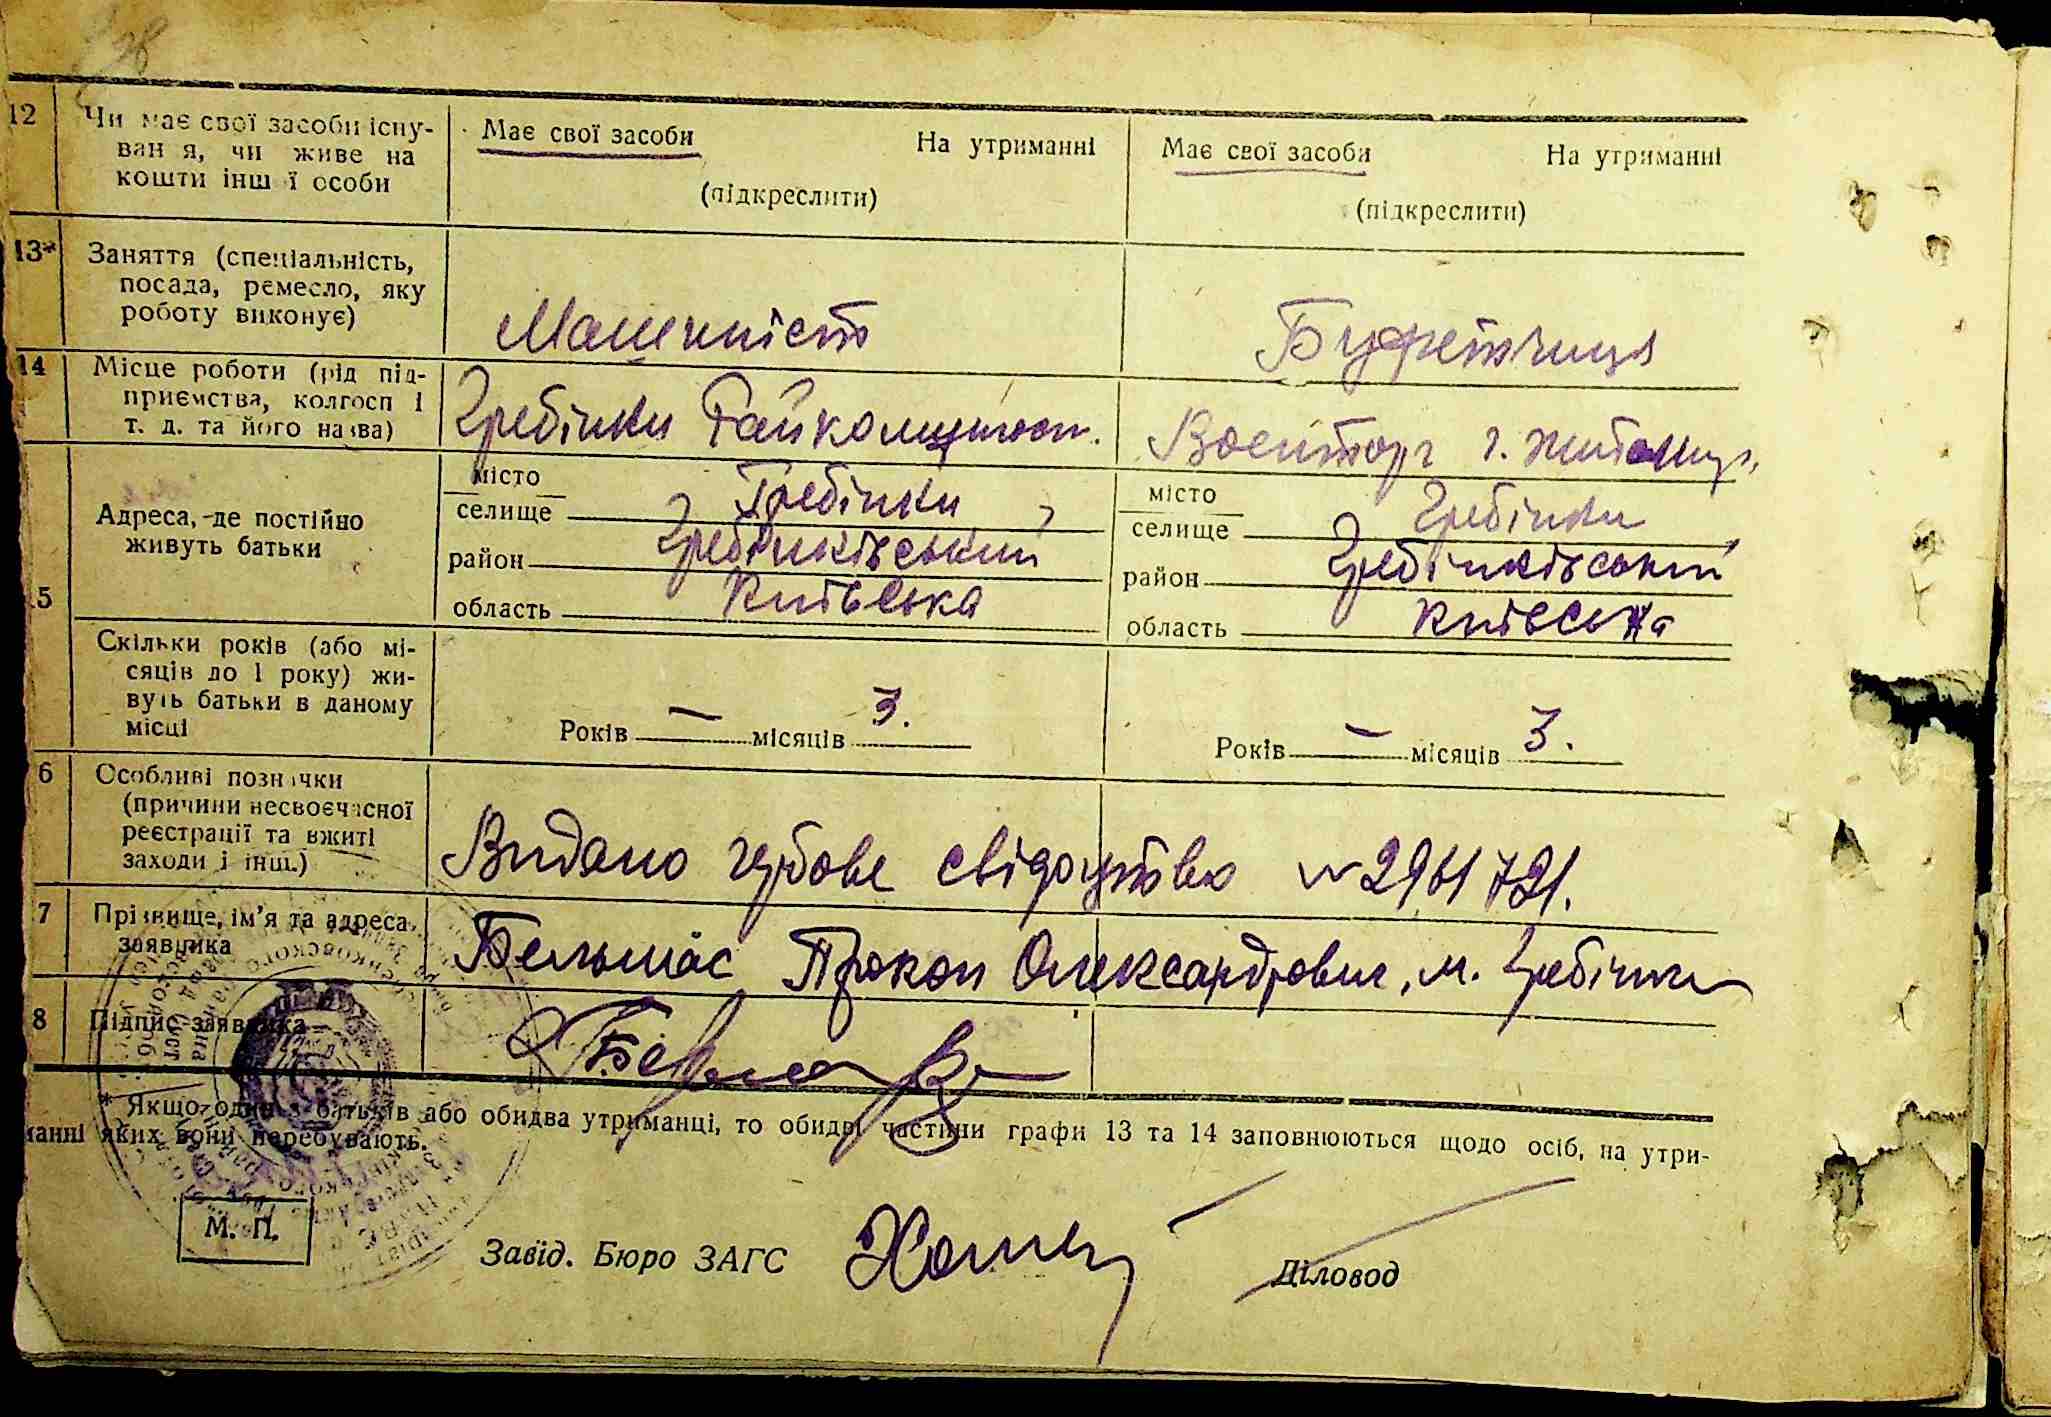 12
Чи має свої засоби існу-
вання, чи живе на
кошти іншої особи
Має свої засоби На утриманні
(підкреслити)
Має свої засоби На утриманні
(підкреслити)
13*
Заняття (спеціальність,
посада, ремесло, яку
роботу виконує)
Машиніст
Буфетчиця
14
Місце роботи (рід під-
приємства, колгосп і
т. д. та його назва)
Гребінки
Воєнторг г. Житомир
5
Адреса, де постійно
живуть батьки
місто
селище Гребінки
район Гребінківський
область Київська
місто
селище Гребінки
район Гребінківський
область Київська
Скільки років (або мі-
сяців до 1 року) жи-
вуть батьки в даному
місці
Років — місяців 3.
Років — місяців 3.
6
Особливі позначки
(причини несвоєчасної
реєстрації та вжиті
заходи і інш.)
Видано гербове свідоцтво № 2961721.
7
Прізвище, ім'я та адреса
заявника
Прокоп Олександрович, м. Гребінки
8
Підпис заявника
* Якщо один з батьків або обидва утриманці, то обидві частини графи 13 та 14 заповнюються щодо осіб, на утри-
манні яких вони перебувають.
М. П.
Завід. Бюро ЗАГС
Діловод